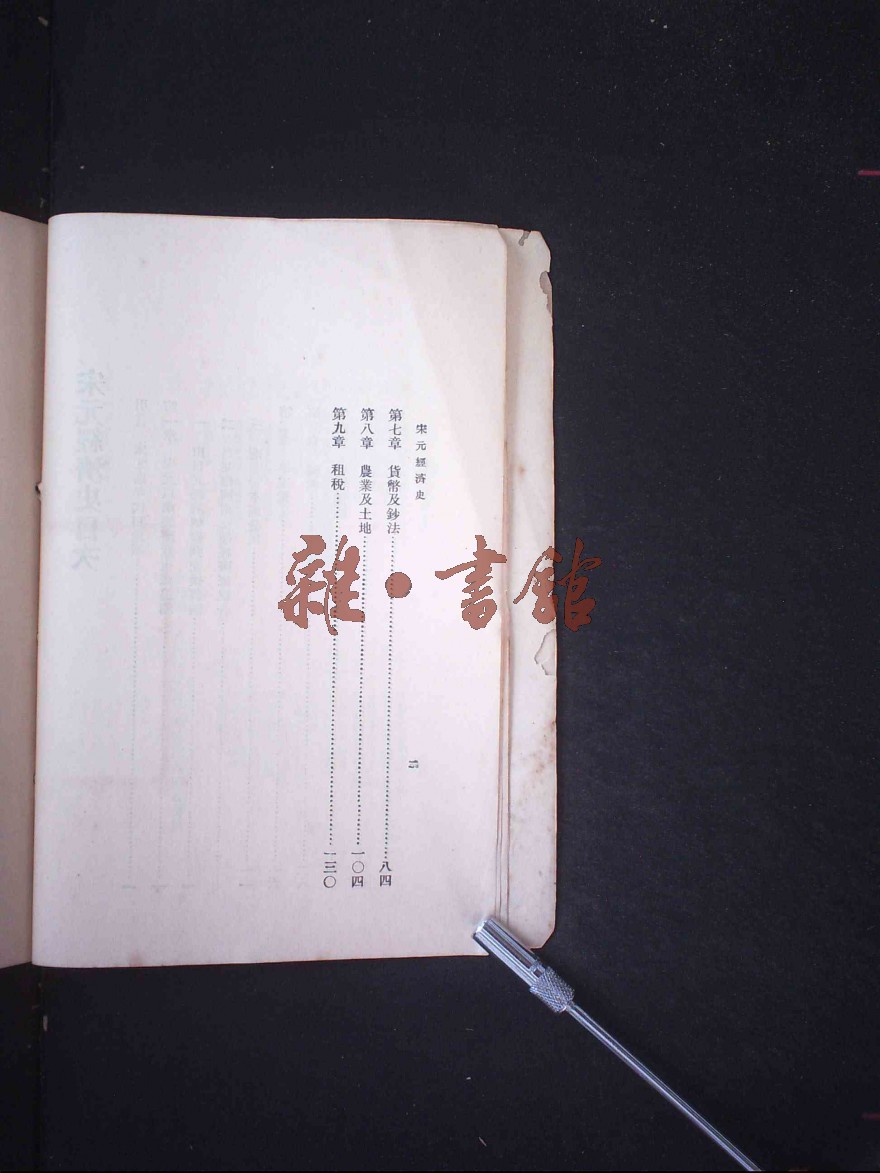 宋元經濟史
第七章 貨幣及鈔法……八四
第八章 農業及土地……一〇四
第九章 租稅……一三〇
二
雜·書館
宋元經濟史目次